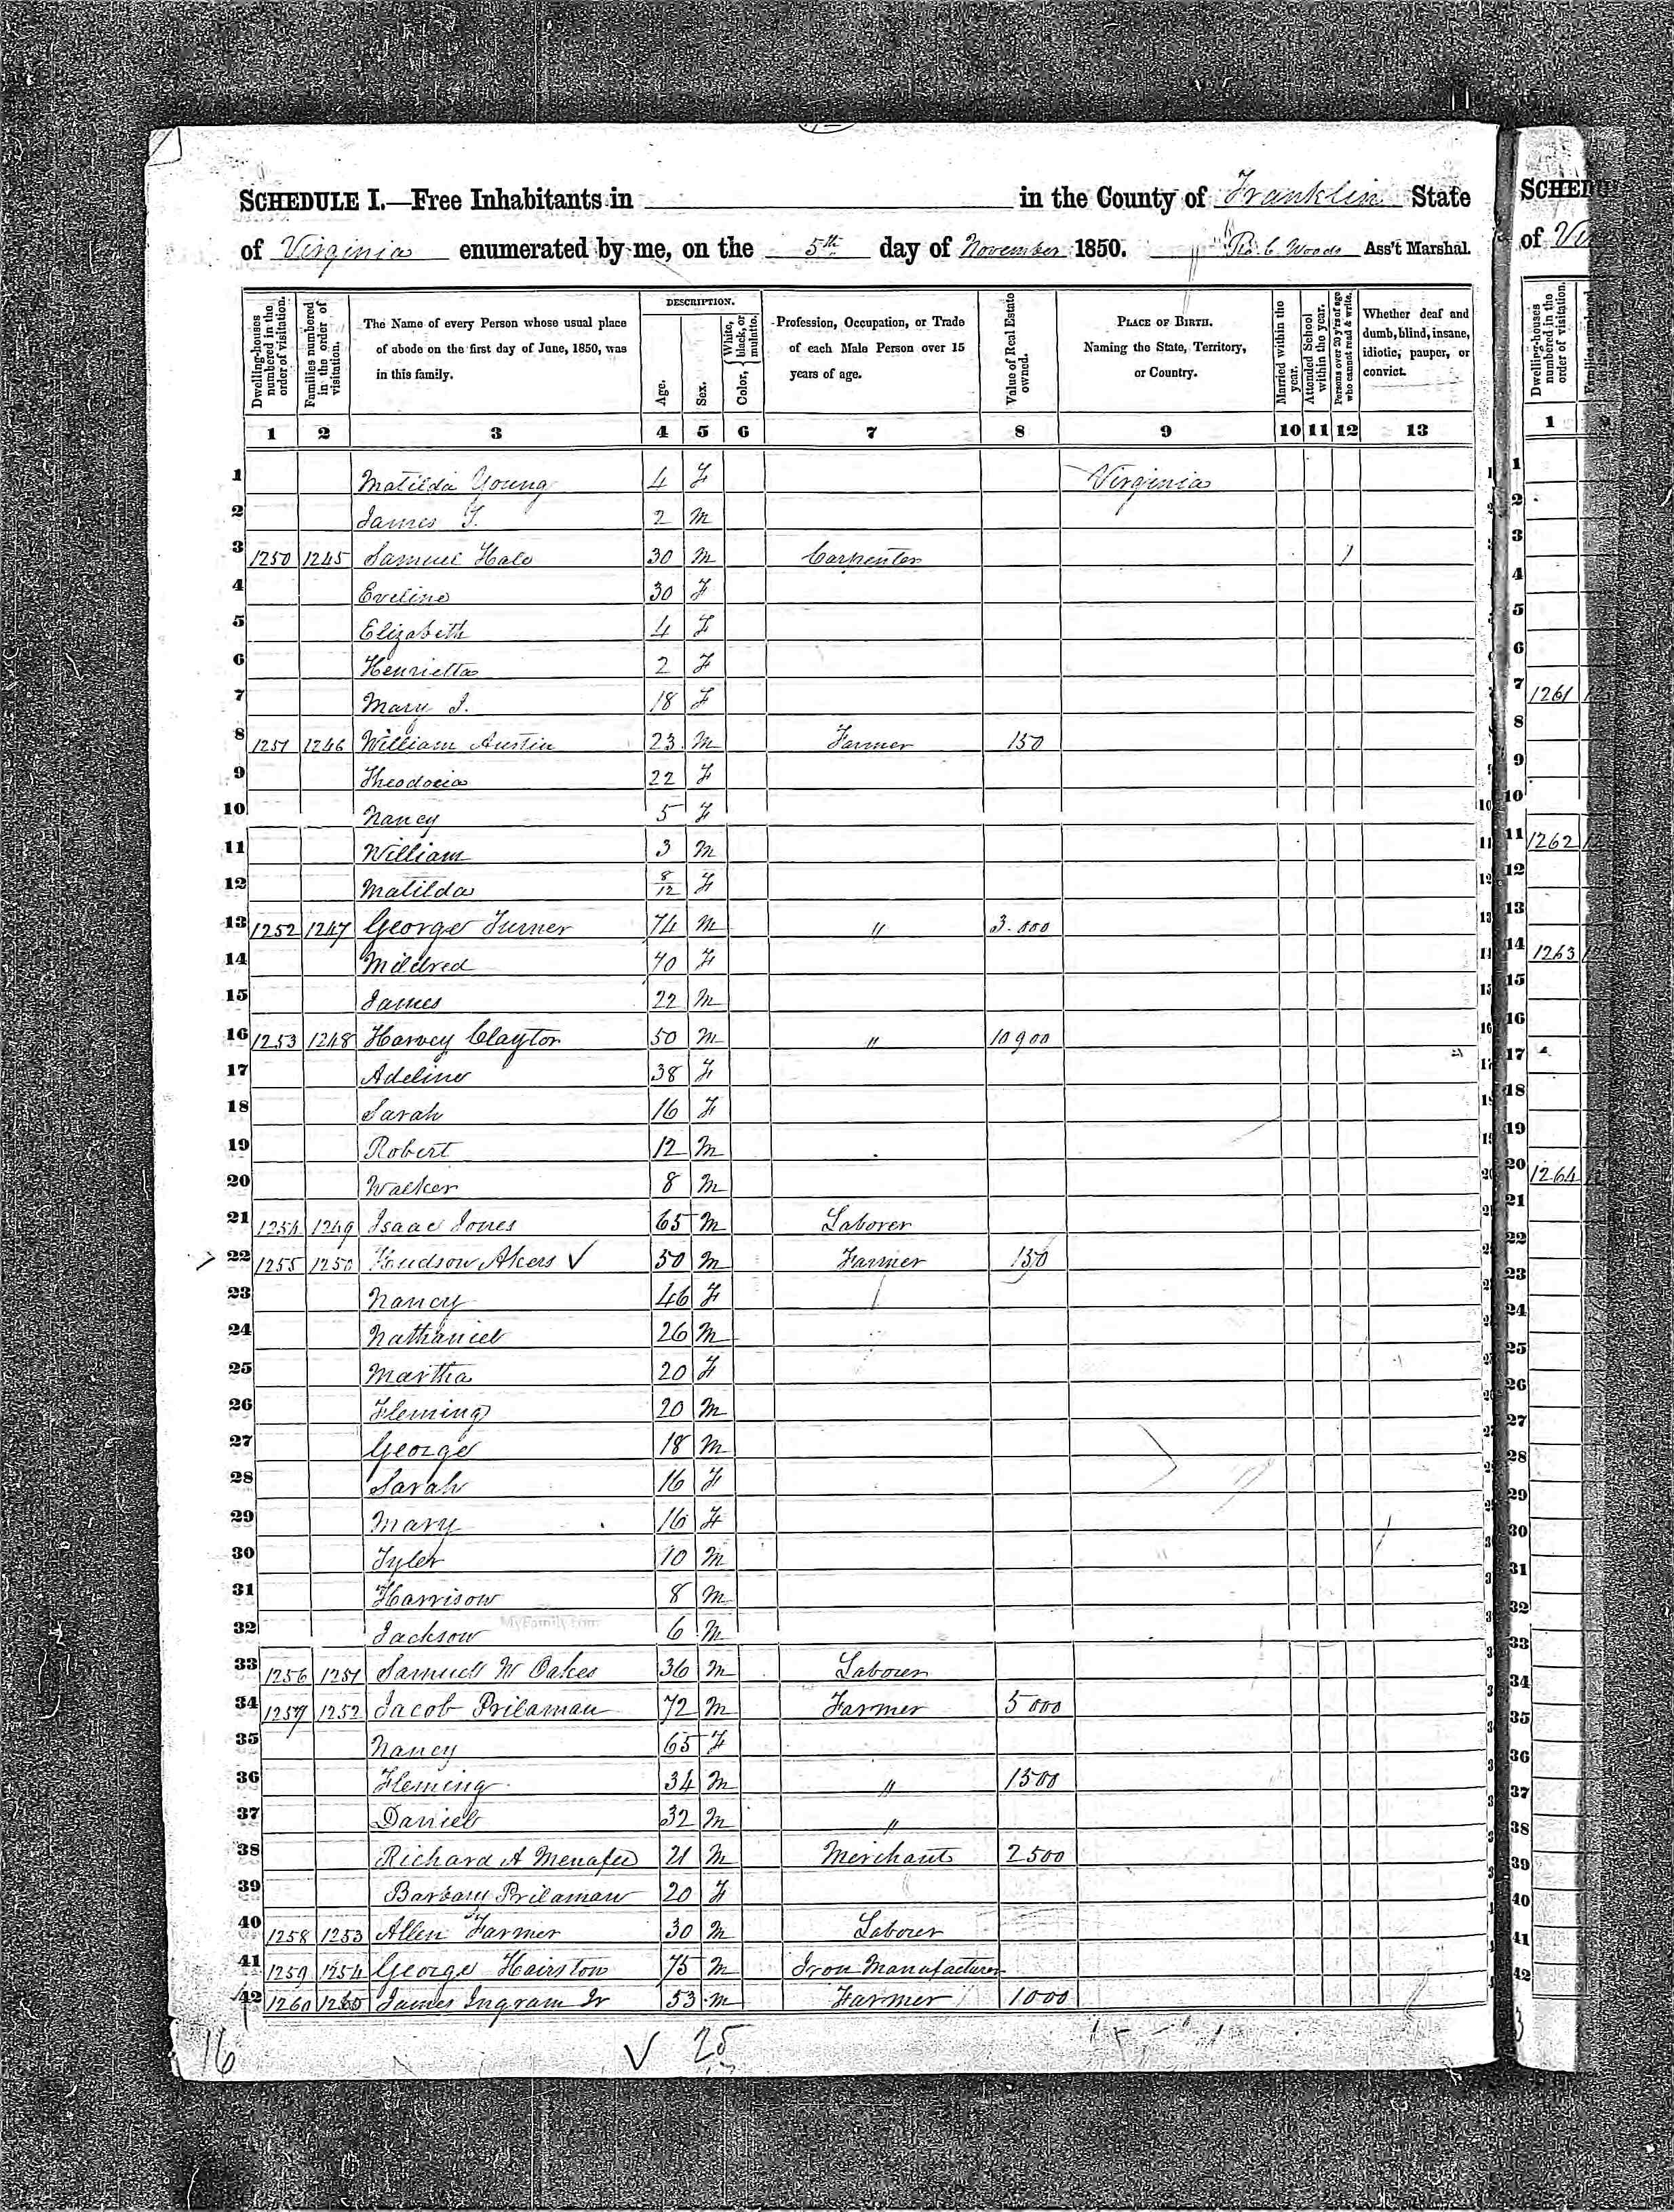 SCHEDULE I.—Free Inhabitants in in the County of Franklin State
of Virginia enumerated by me, on the 5th day of November 1850. C. Woods Ass't Marshal.
Dwelling-houses numbered in the order of visitation.
Families numbered in the order of visitation.
The Name of every Person whose usual place of abode on the first day of June, 1850, was in this family.
DESCRIPTION.
Age.
Sex.
Color, { White, black, or mulatto.
Profession, Occupation, or Trade of each Male Person over 15 years of age.
Value of Real Estate owned.
PLACE OF BIRTH. Naming the State, Territory, or Country.
Married within the year.
Attended School within the year.
Persons over 20 y'rs of age who cannot read & write.
Whether deaf and dumb, blind, insane, idiotic, pauper, or convict.
1 2 3 4 5 6 7 8 9 10 11 12 13
1 Matilda Young 4 F Virginia
2 James T. 2 M
3 1250 1245 Samuel Hale 30 M Carpenter 1
4 Eveline 30 F
5 Elizabeth 4 F
6 Henrietta 2 F
7 Mary J. 18 F
8 1251 1246 William Austin 23 M Farmer 150
9 Theodocia 22 F
10 Nancy 5 F
11 William 3 M
12 Matilda 8/12 F
13 1252 1247 George Turner 74 M " 3.000
14 Mildred 40 F
15 James 22 M
16 1253 1248 Harvey Clayton 50 M " 10900
17 Adeline 38 F
18 Sarah 16 F
19 Robert 12 M
20 Walker 8 M
21 1254 1249 Isaac Jones 65 M Laborer
22 1255 1250 Hudson Akers ✓ 50 M Farmer 150
23 Nancy 46 F
24 Nathaniel 26 M
25 Martha 20 F
26 Fleming 20 M
27 George 18 M
28 Sarah 16 F
29 Mary 16 F
30 Tyler 10 M
31 Harrison 8 M
32 Jackson 6 M
MyFamily.com
33 1256 1251 Samuel W Oakes 36 M Laborer
34 1257 1252 Jacob Prilaman 72 M Farmer 5000
35 Nancy 65 F
36 Fleming 34 M " 1500
37 Daniel 32 M "
38 Richard A Menafee 21 M Merchant 2500
39 Barbary Prilaman 20 F
40 1258 1253 Allen Farmer 30 M Laborer
41 1259 1254 George Hairston 75 M Iron Manufacturer
42 1260 1255 James Ingram Jr 53 M Farmer 1000
16 ✓ 25
SCHED
of Vi
Dwelling-houses numbered in the order of visitation.
1
1261
1262
1263
1264